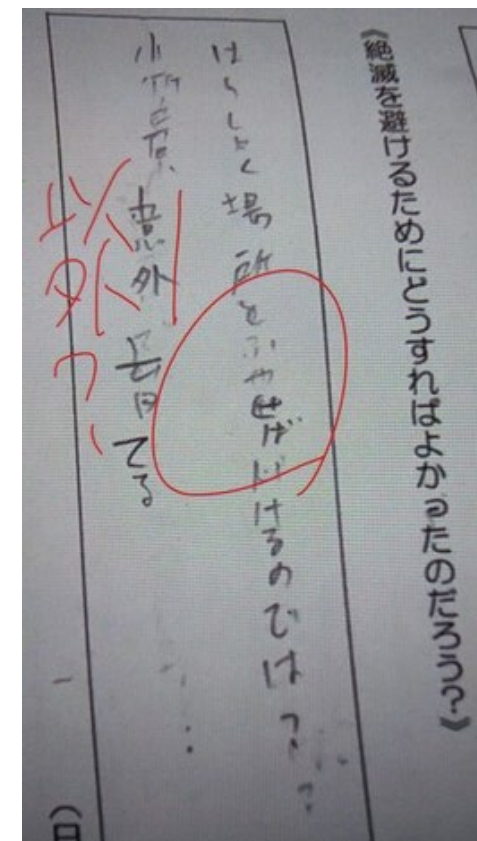 《絶滅を避けるためにどうすればよかったのだろう？》
はんしょく場所をふやせばいけるのでは？？
小笠原意外育てる
以外？
（日